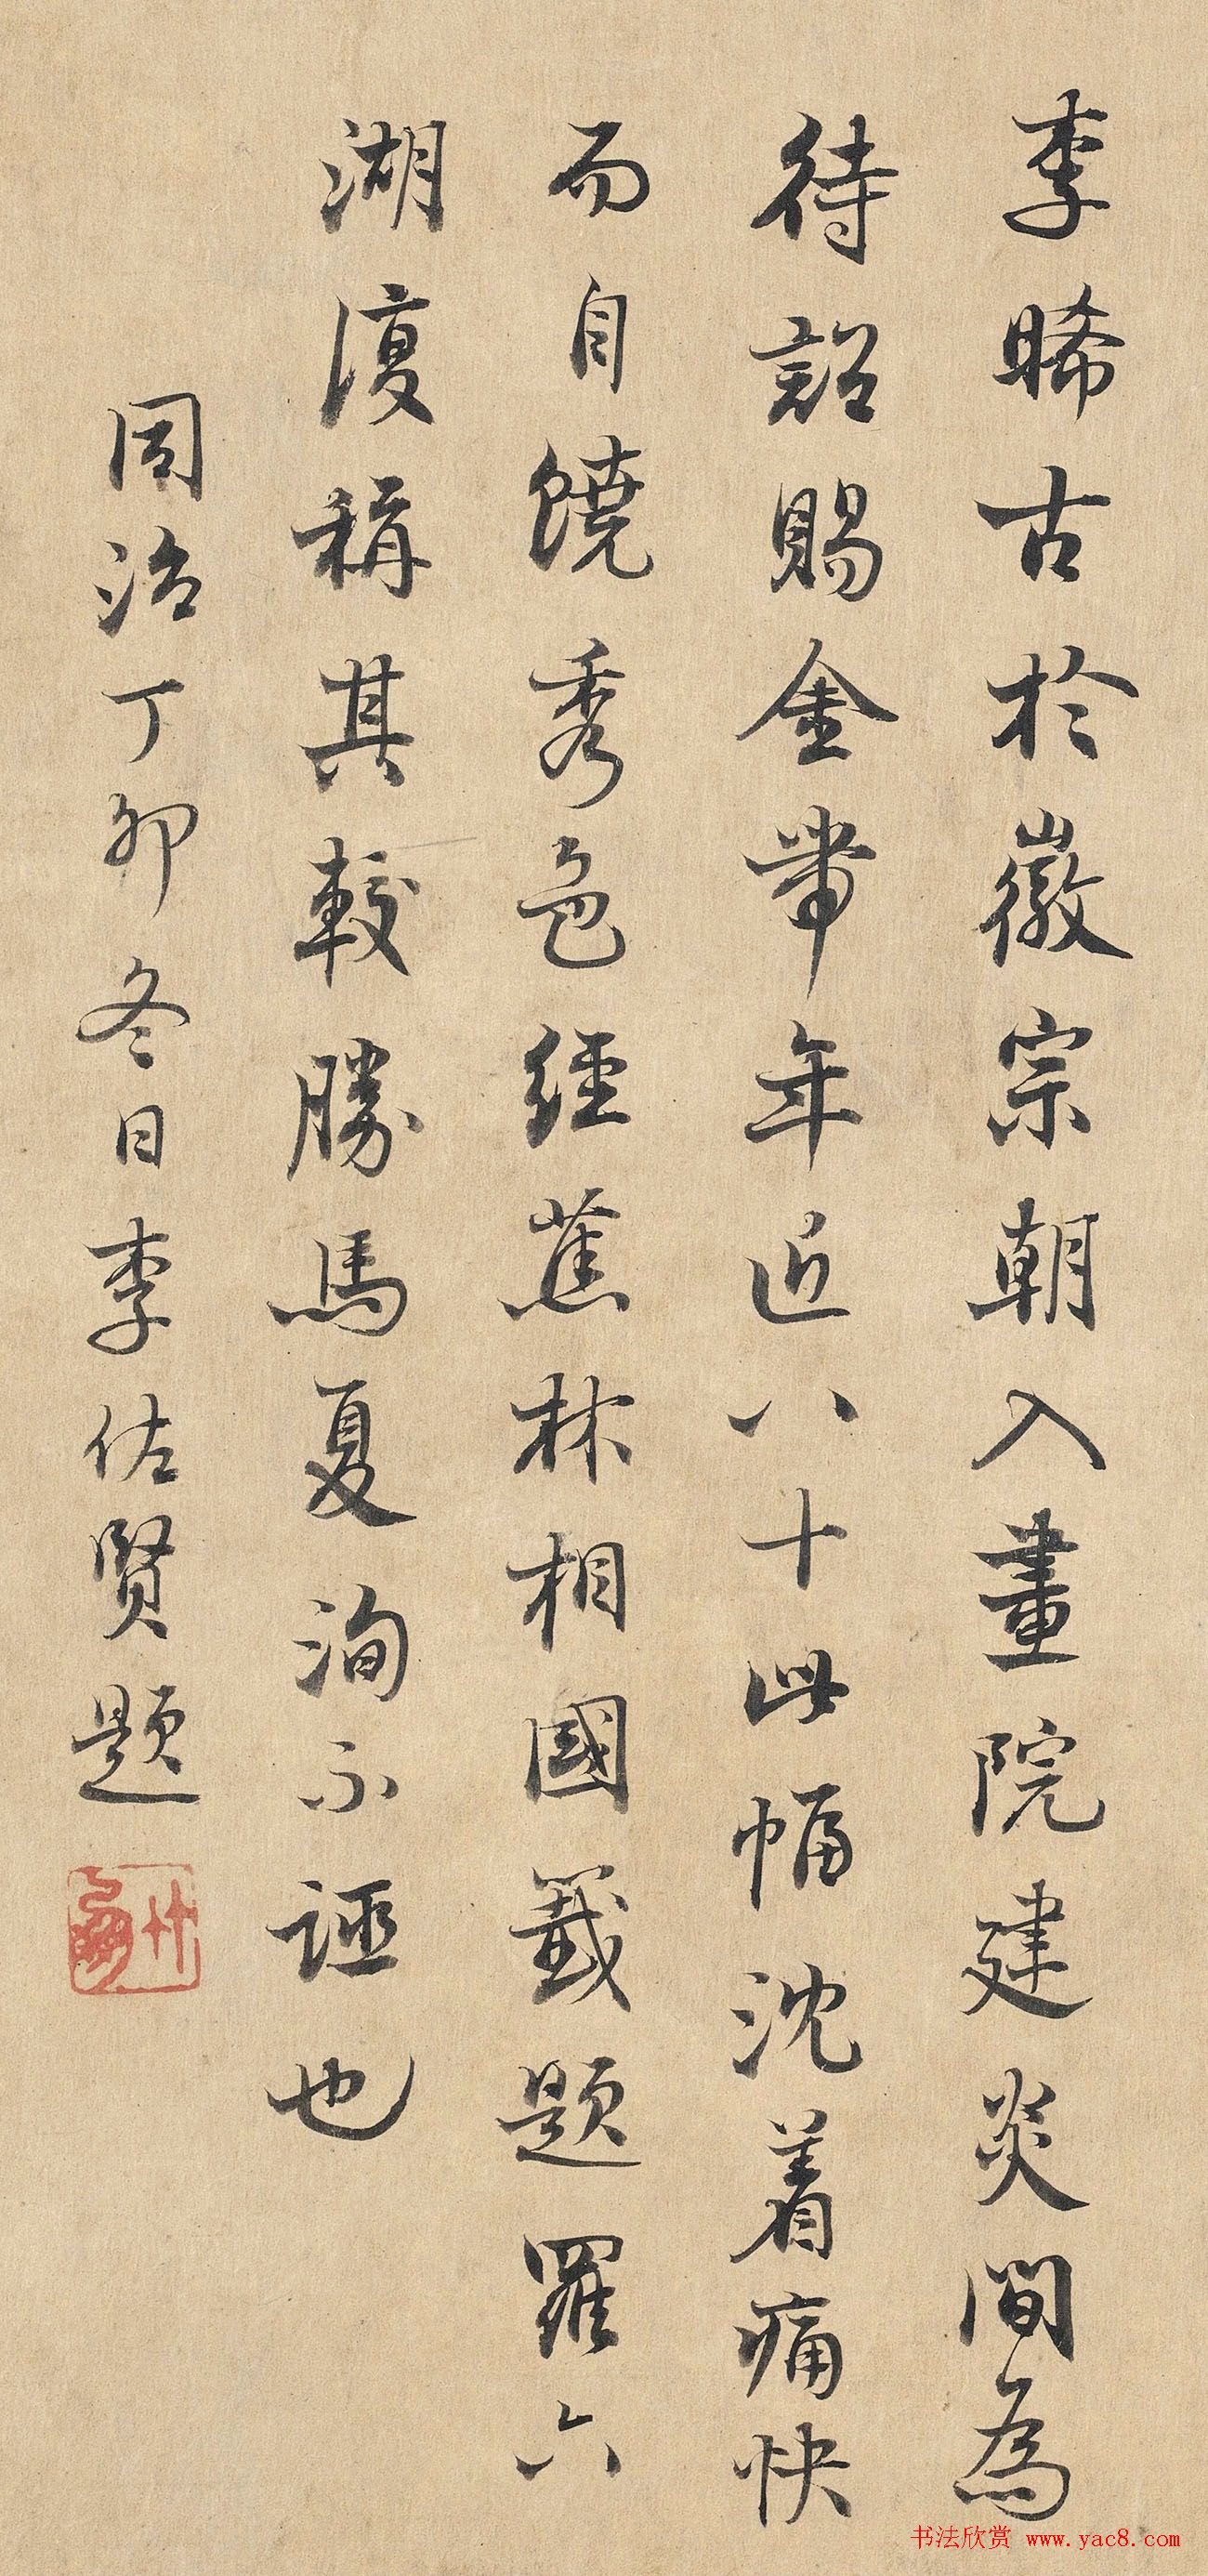 李晞古於徽宗朝入畫院建炎間為
待詔賜金帶年近八十此幅沈着痛快
而自饒秀色經蕉林相國籖題羅六
湖復稱其較勝馬夏洵不誣也
同治丁卯冬日李佐賢題
书法欣赏 www.yac8.com